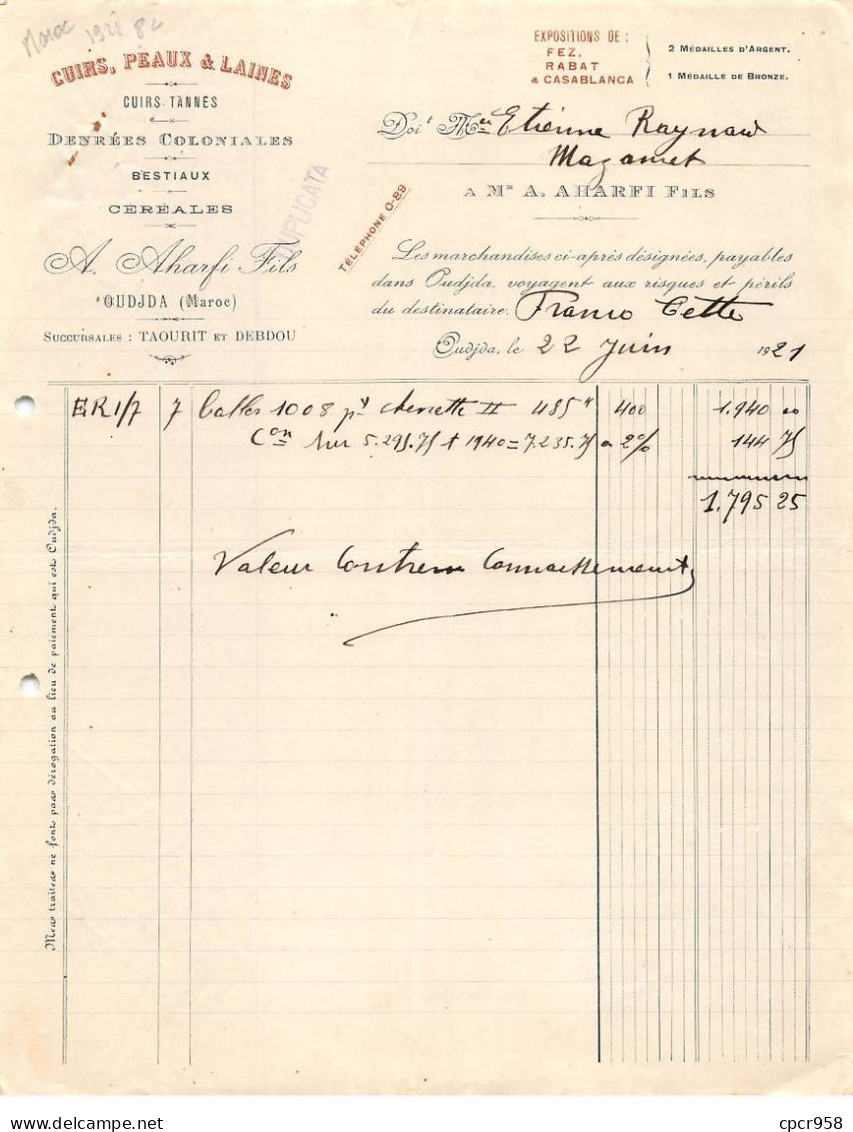 Maroc 1921 82
CUIRS, PEAUX & LAINES
CUIRS TANNÉS
DENRÉES COLONIALES
BESTIAUX
CÉRÉALES
A. Aharfi Fils
OUDJDA (Maroc)
SUCCURSALES : TAOURIT ET DEBDOU
DUPLICATA
TÉLÉPHONE 0-89
EXPOSITIONS DE :
FEZ,
RABAT
& CASABLANCA
2 MÉDAILLES D'ARGENT.
1 MÉDAILLE DE BRONZE.
Doit Mr Etienne Raynaud
Mazamet
A MR A. AHARFI FILS
Les marchandises ci-après désignées, payables
dans Oudjda, voyagent aux risques et périls
du destinataire. Franco Cette
Oudjda, le 22 Juin 1921
ER 1/7 7 balles 1008 px chevrette II 485 K 400 1.940 00
Con sur 5.295.75 + 1940 = 7.235.75 a 2% 144 75
1.795 25
Valeur Contre Connaissement
Mes traites ne font pas dérogation au lieu de paiement qui est Oudjda.
cpcr958